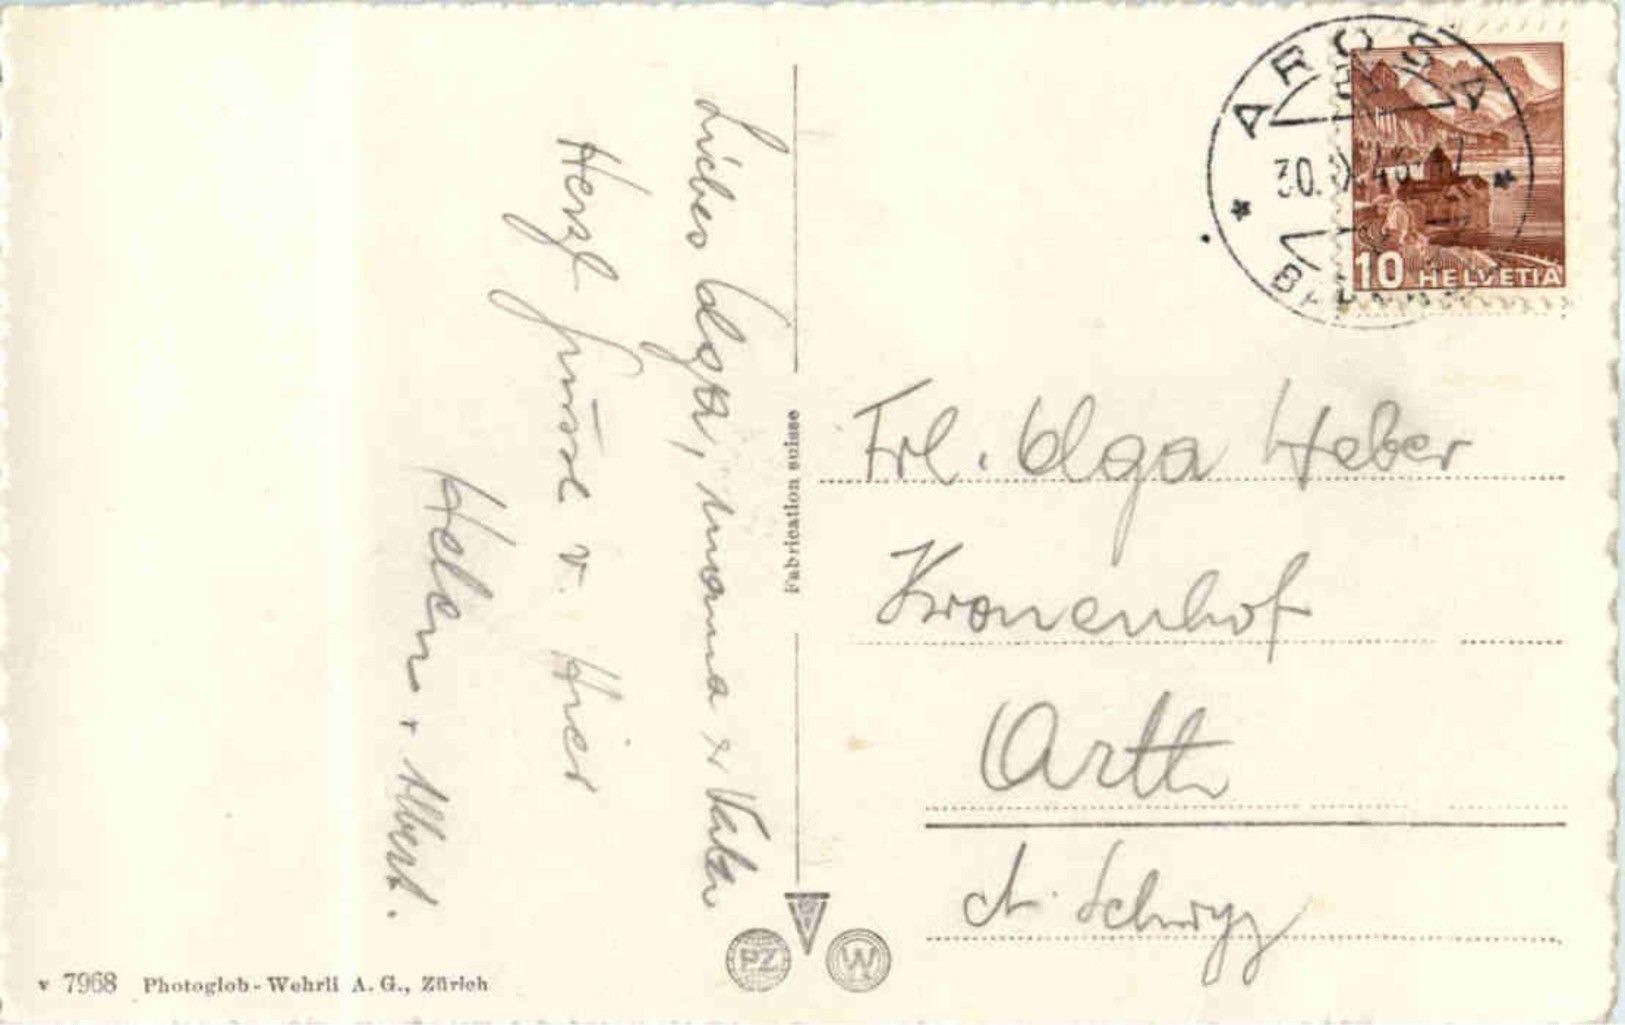 Liebes Olga, Mama & Vater
Herzl. Grüsse v. hier
Helen + Albert.
Fabrication suisse
AROSA
30. 46
10 HELVETIA
Frl. Olga Heber
Kronenhof
Arth
Kt. Schwyz
PZ W
v 7968 Photoglob-Wehrli A.G., Zürich